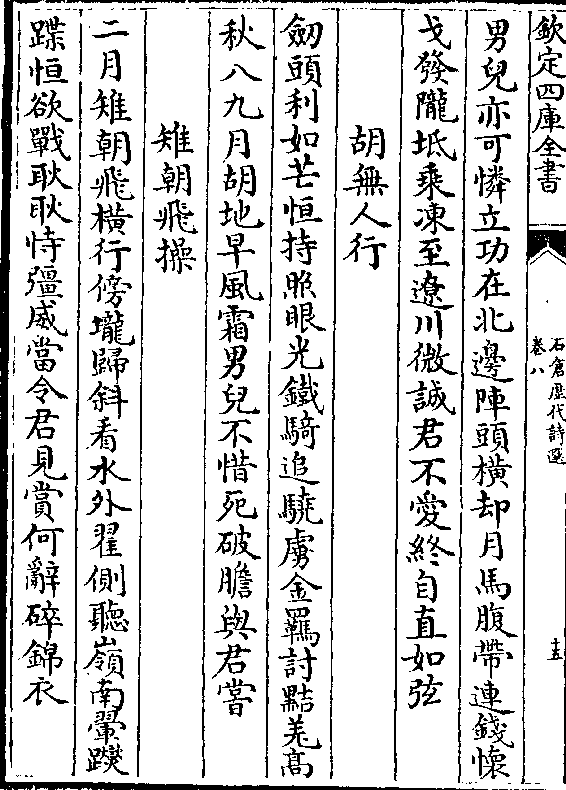 欽定四庫全書
石倉歷代詩選
卷八
十五
男兒亦可憐立功在北邊陣頭横却月馬腹帶連錢懷
戈發隴坻乘凍至遼川微誠君不愛終自直如弦
胡無人行
劒頭利如芒恒持照眼光鐵騎追驍虜金羈討黠羌髙
秋八九月胡地早風霜男兒不惜死破膽與君嘗
雉朝飛操
二月雉朝飛横行傍壠歸斜看水外翟側聽嶺南翬躞
蹀恒欲戰耿耿恃彊威當令君見賞何辭碎錦衣